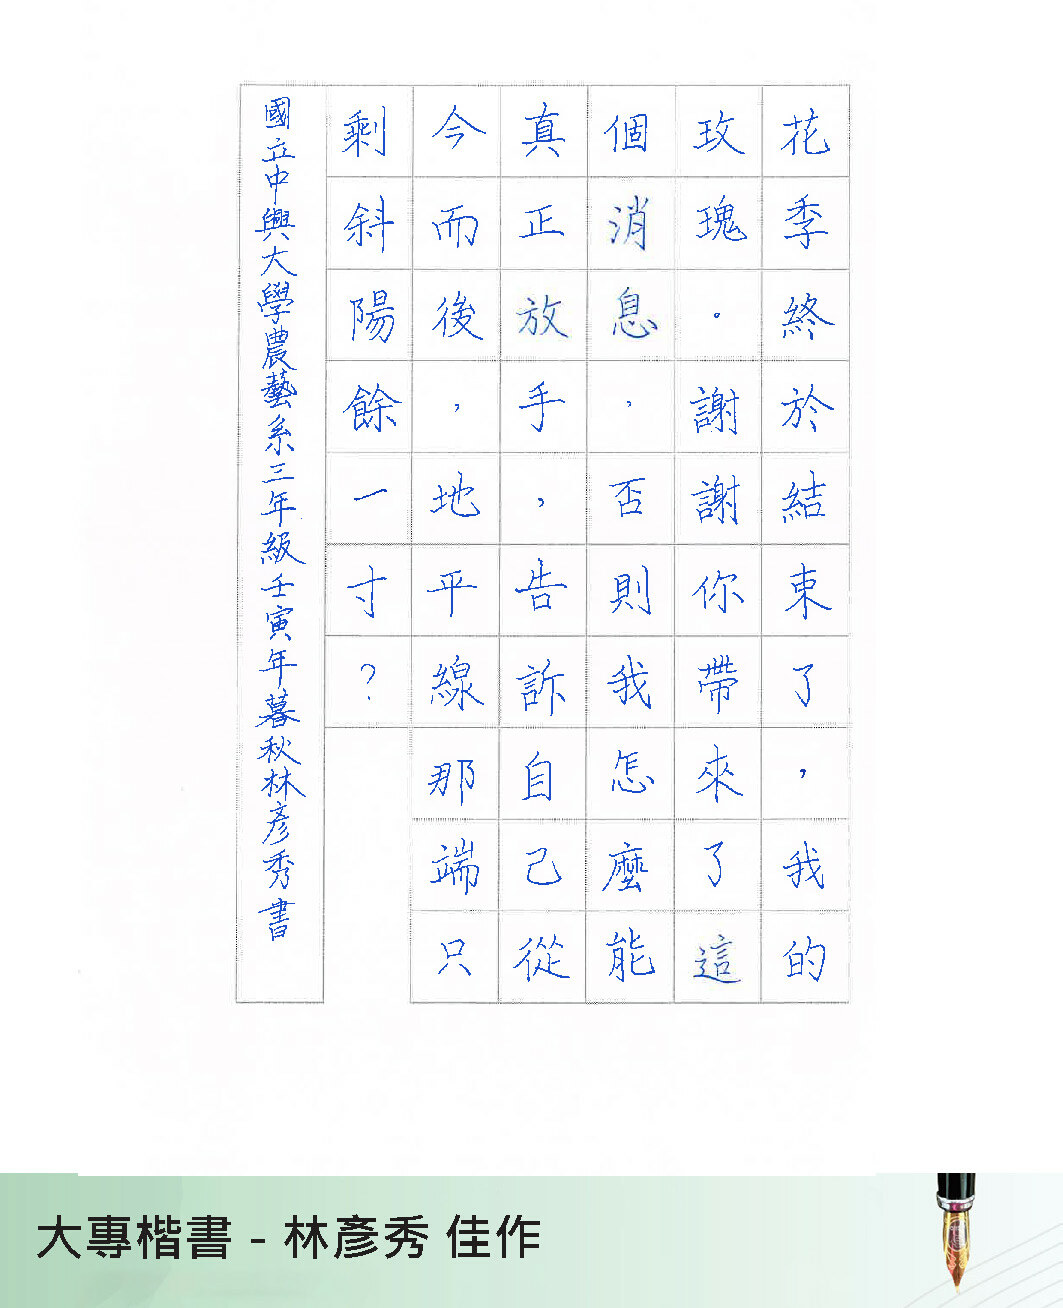 花季終於結束了，我的
玫瑰．謝謝你帶來了這
個消息，否則我怎麼能
真正放手，告訴自己從
今而後，地平線那端只
剩斜陽餘一寸？
國立中興大學農藝系三年級壬寅年暮秋林彥秀書
大專楷書 - 林彥秀 佳作